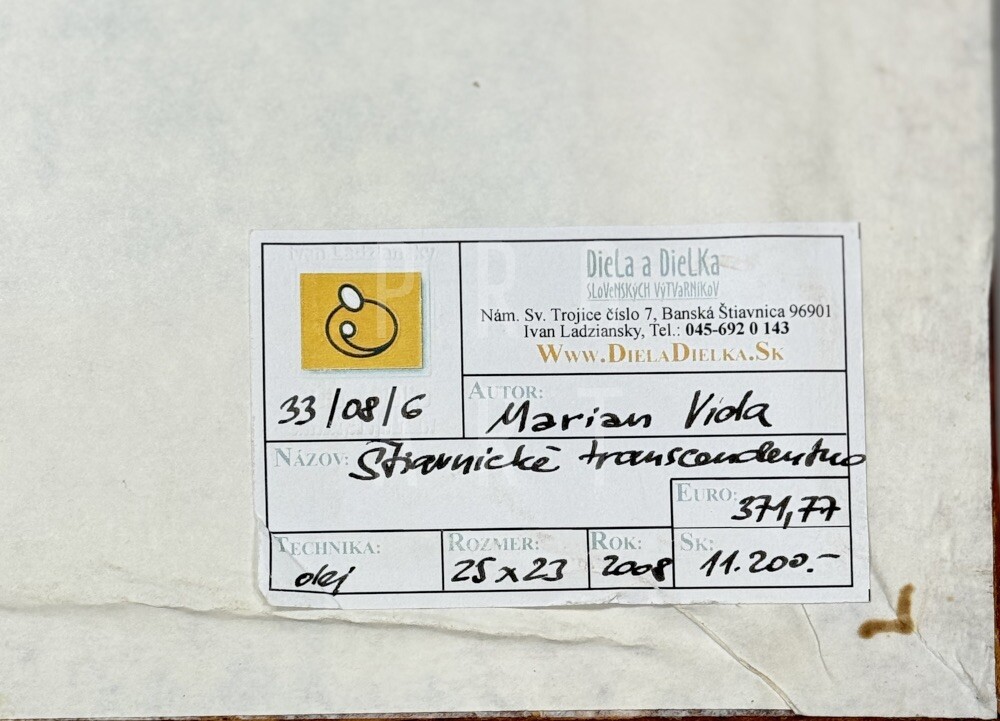 DieLa a DieLKa
SLOVeNSKÝCH VýTVaRNíKoV
Nám. Sv. Trojice číslo 7, Banská Štiavnica 96901
Ivan Ladziansky, Tel.: 045-692 0 143
WWW.DIELADIELKA.SK
33/08/6
AUTOR: Marian Vida
NÁZOV: Štiavnické transcendentno
EURO: 371,77
TECHNIKA: olej
ROZMER: 25 x 23
ROK: 2008
SK: 11.200.-